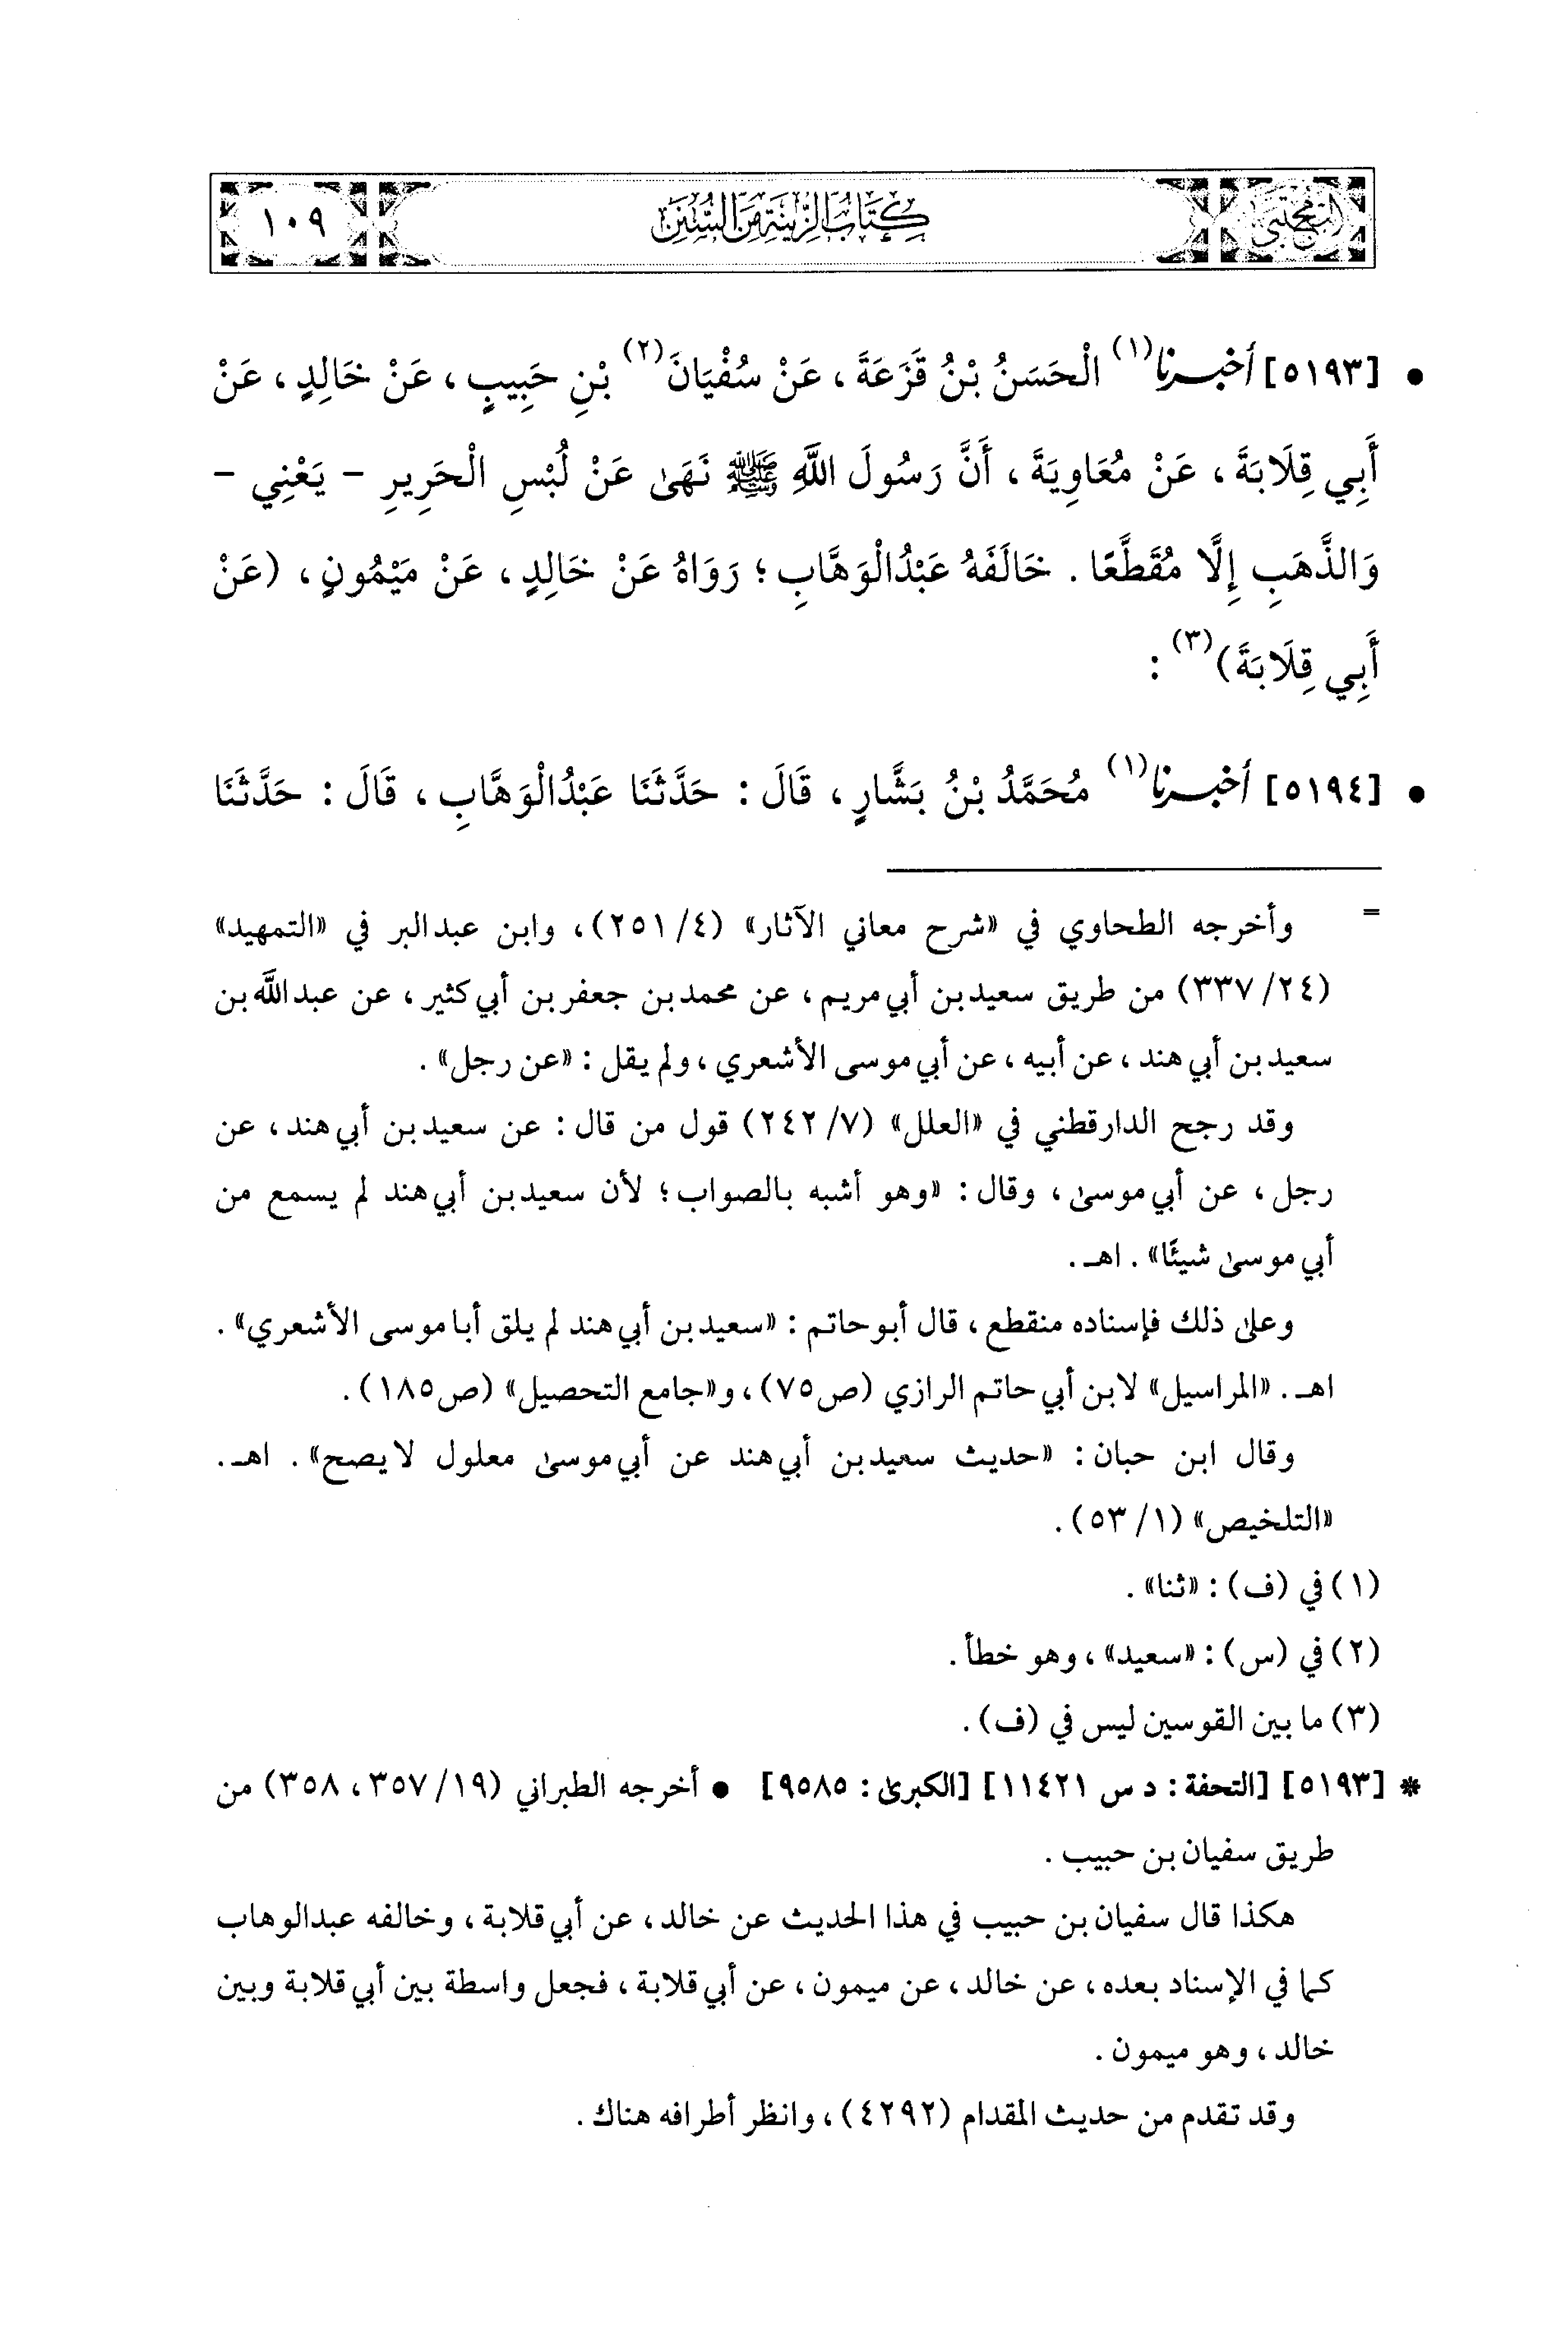 المجتبى
كتاب الزينة من السنن
١٠٩
• [٥١٩٣] أخبرنا(١) الْحَسَنُ بْنُ قَزَعَةَ، عَنْ سُفْيَانَ(٢) بْنِ حَبِيبٍ، عَنْ خَالِدٍ، عَنْ
أَبِي قِلَابَةَ، عَنْ مُعَاوِيَةَ، أَنَّ رَسُولَ اللَّهِ ﷺ نَهَىٰ عَنْ لُبْسِ الْحَرِيرِ - يَعْنِي -
وَالذَّهَبِ إِلَّا مُقَطَّعًا. خَالَفَهُ عَبْدُالْوَهَّابِ؛ رَوَاهُ عَنْ خَالِدٍ، عَنْ مَيْمُونٍ، (عَنْ
أَبِي قِلَابَةَ)(٣):
• [٥١٩٤] أخبرنا(١) مُحَمَّدُ بْنُ بَشَّارٍ، قَالَ: حَدَّثَنَا عَبْدُالْوَهَّابِ، قَالَ: حَدَّثَنَا
= وأخرجه الطحاوي في «شرح معاني الآثار» (٤/ ٢٥١)، وابن عبدالبر في «التمهيد»
(٢٤/ ٣٣٧) من طريق سعيد بن أبي مريم، عن محمد بن جعفر بن أبي كثير، عن عبداللَّه بن
سعيد بن أبي هند، عن أبيه، عن أبي موسى الأشعري، ولم يقل: «عن رجل».
وقد رجح الدارقطني في «العلل» (٧/ ٢٤٢) قول من قال: عن سعيد بن أبي هند، عن
رجل، عن أبي موسىٰ، وقال: «وهو أشبه بالصواب؛ لأن سعيد بن أبي هند لم يسمع من
أبي موسىٰ شيئًا». اهـ.
وعلىٰ ذلك فإسناده منقطع، قال أبو حاتم: «سعيد بن أبي هند لم يلق أبا موسى الأشعري».
اهـ. «المراسيل» لابن أبي حاتم الرازي (ص٧٥)، و«جامع التحصيل» (ص١٨٥).
وقال ابن حبان: «حديث سعيد بن أبي هند عن أبي موسىٰ معلول لا يصح». اهـ.
«التلخيص» (١/ ٥٣).
(١) في (ف): «ثنا».
(٢) في (س): «سعيد»، وهو خطأ.
(٣) ما بين القوسين ليس في (ف).
* [٥١٩٣] [التحفة: د س ١١٤٢١] [الكبرىٰ: ٩٥٨٥] • أخرجه الطبراني (١٩/ ٣٥٧، ٣٥٨) من
طريق سفيان بن حبيب.
هكذا قال سفيان بن حبيب في هذا الحديث عن خالد، عن أبي قلابة، وخالفه عبدالوهاب
كما في الإسناد بعده، عن خالد، عن ميمون، عن أبي قلابة، فجعل واسطة بين أبي قلابة وبين
خالد، وهو ميمون.
وقد تقدم من حديث المقدام (٤٢٩٢)، وانظر أطرافه هناك.